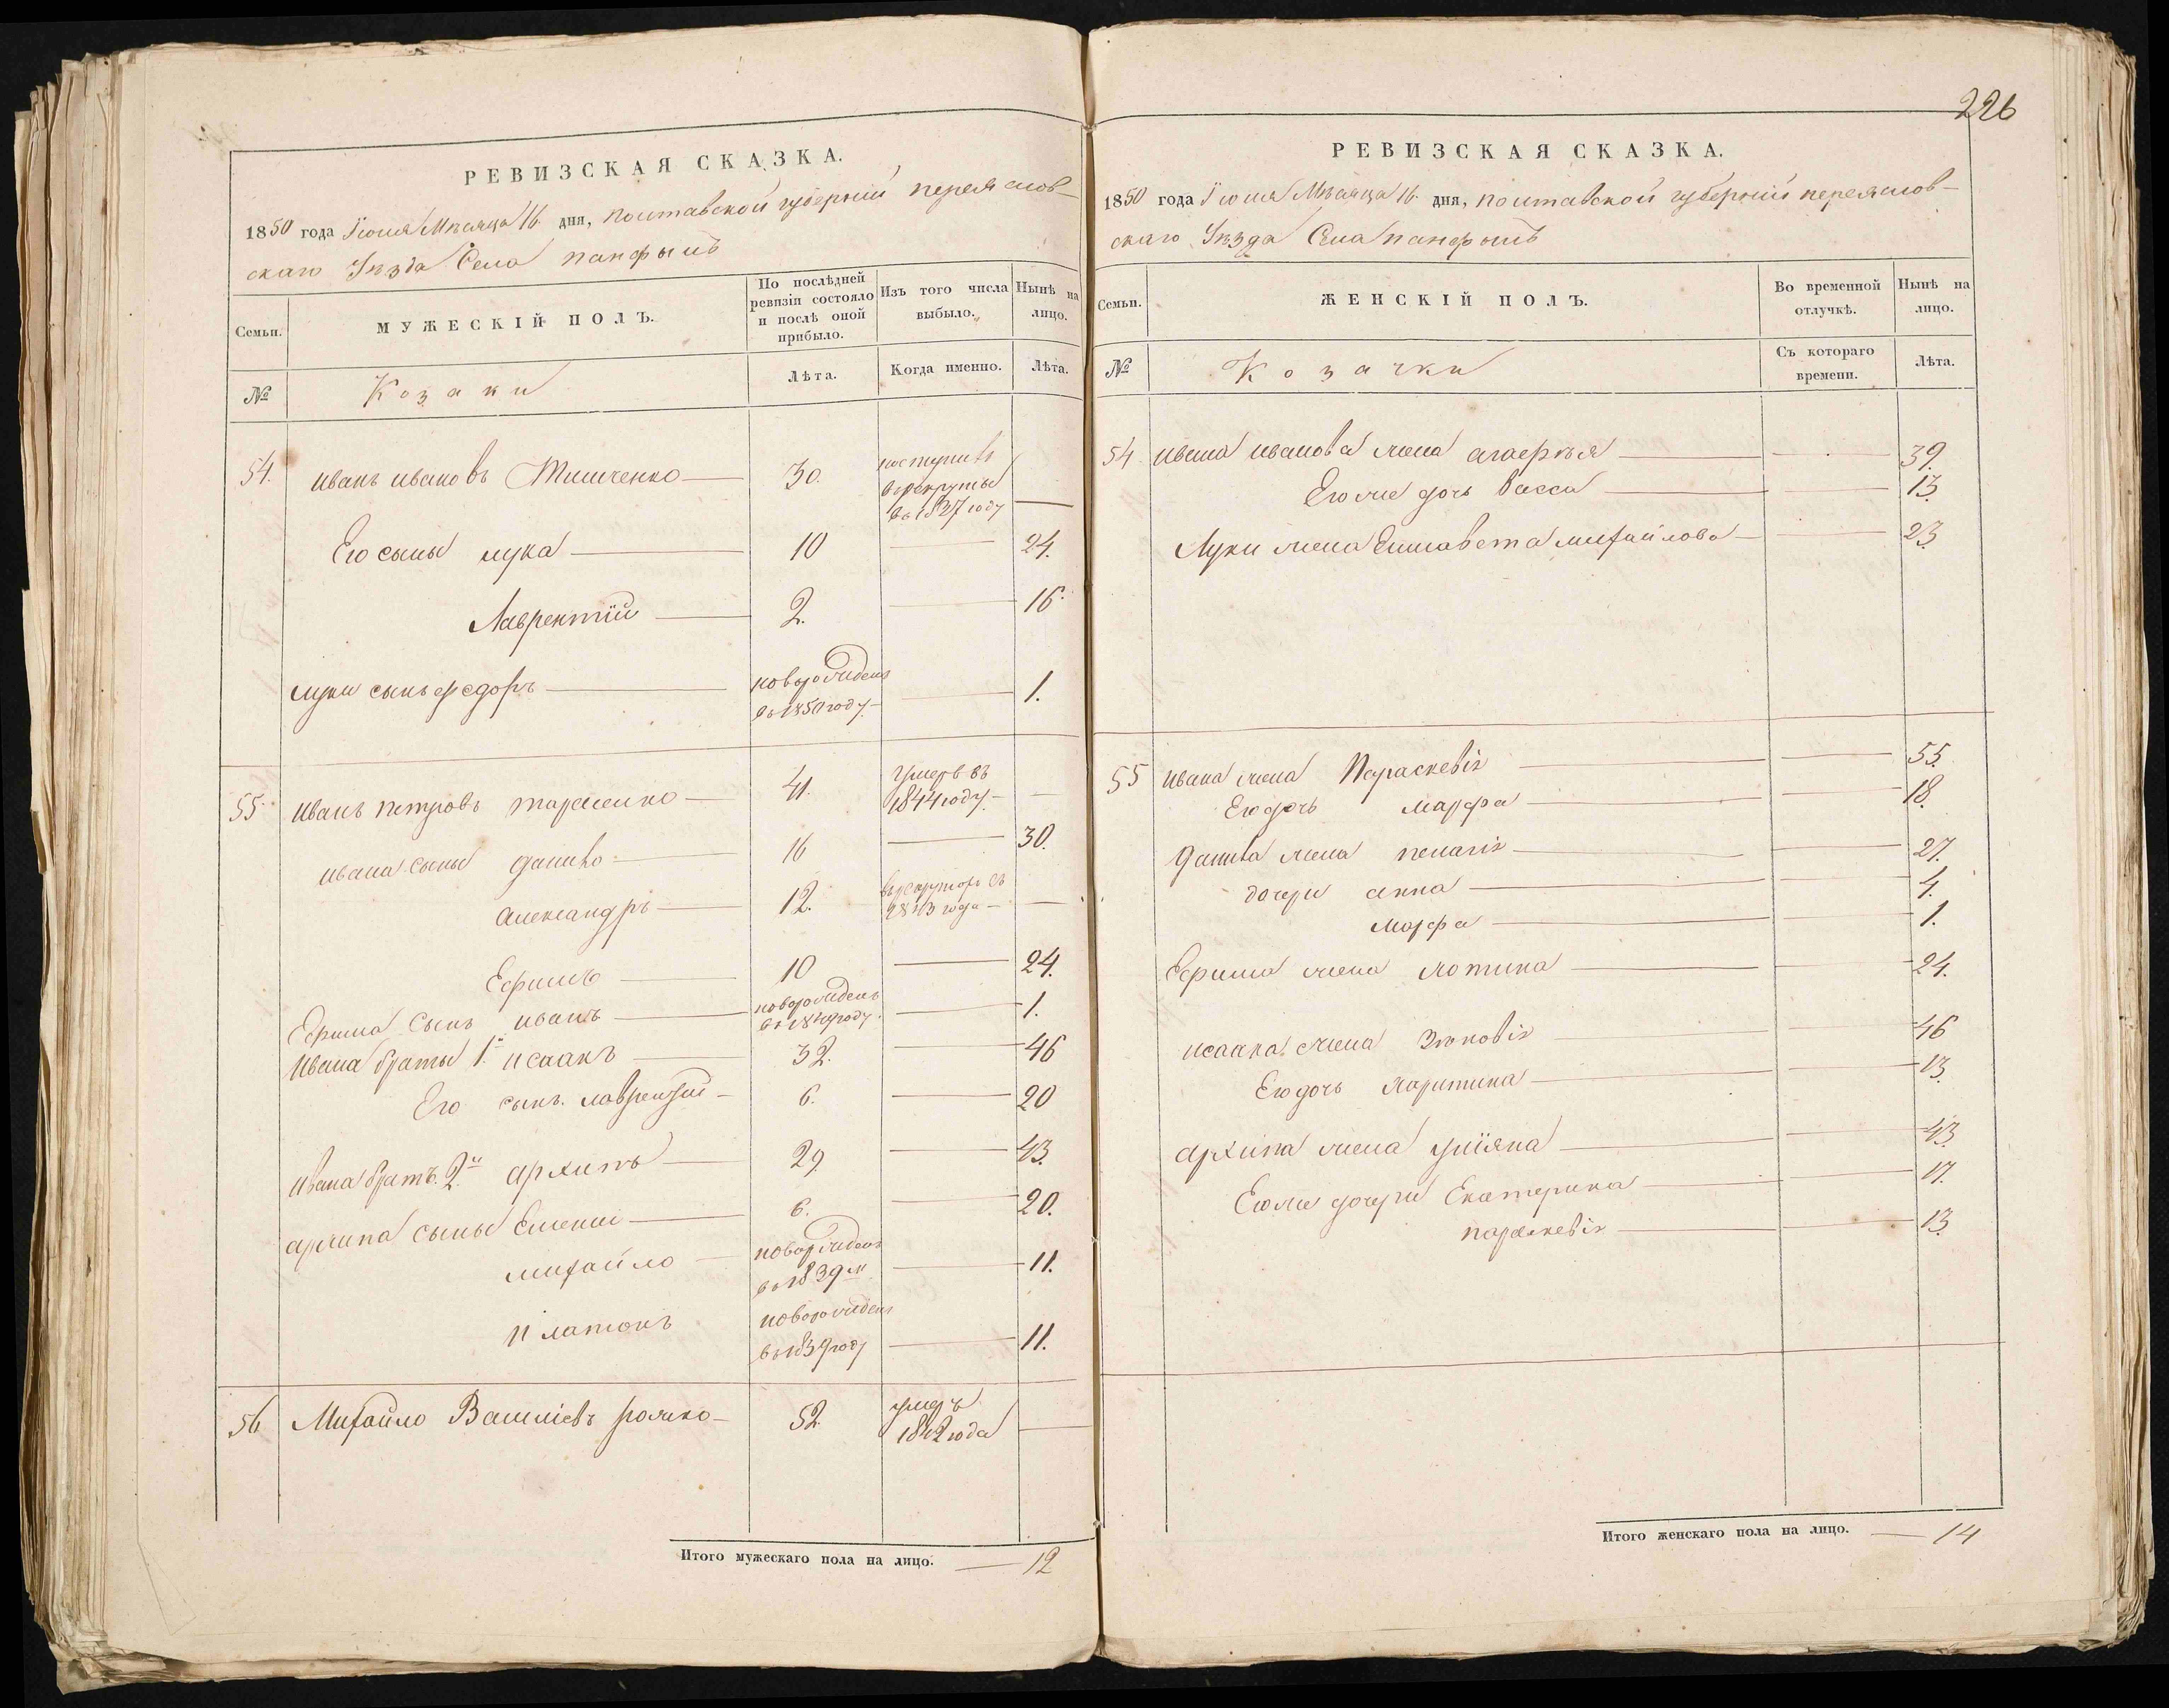 РЕВИЗСКАЯ СКАЗКА.
1850 года Іюня Мѣсяца 16. дня, полтавской губерніи переяслов-
скаго Уѣзда Села панфылъ
Семьи.
МУЖЕСКІЙ ПОЛЪ.
По послѣдней ревизіи состояло и послѣ оной прибыло.
Изъ того числа выбыло.
Нынѣ на лицо.
№
Козаки
Лѣта.
Когда именно.
Лѣта.
54. иванъ ивановъ Тимченко 30. поступилъ
врекруты
въ 1837 году
Его сыны лука 10 24.
Лаврентій 2. 16.
луки сынъ федоръ новорожденъ 1.
въ 1850 году
55. иванъ петровъ 41. умеръ въ
1844 году
ивана сыны данило 16 30.
александръ 12. врекруторъ съ
1843 года
Ефимъ 10 24.
Ефима сынъ иванъ новорожденъ 1.
въ 1849 году.
Ивана браты 1.й исаакъ 32. 46
Его сынъ лаврентій 6. 20
ивана братъ 2й архипъ 29 43.
архипа сыны 6. 20.
михайло новорожденъ 11.
въ 1839 м
платонъ новорожденъ 11.
въ 1839 году
56 Михайло Василіевъ 52. умеръ
1842 года
Итого мужескаго пола на лицо. 12
226
РЕВИЗСКАЯ СКАЗКА.
1850 года Іюня Мѣсяца 16. дня, полтавской губерніи переяслов-
скаго Уѣзда Села панфылъ
Семьи.
ЖЕНСКІЙ ПОЛЪ.
Во временной отлучкѣ.
Нынѣ на лицо.
№
Козачки
Съ котораго времени.
Лѣта.
54 ивана иванова жена агафья 39.
Его же дочь васса 13.
Луки жена Елисавета михайлова 23.
55 ивана жена Параскевія 55.
Его дочь марфа 18.
данила жена пелагія 27.
дочери анна 4.
марфа 1.
Ефима жена фотина 24.
исаака жена Зиновія 46
Его дочь харитина 13.
архипа жена уліяна 43.
Его же дочери Екатерина 17.
параскевія 13.
Итого женскаго пола на лицо. 14